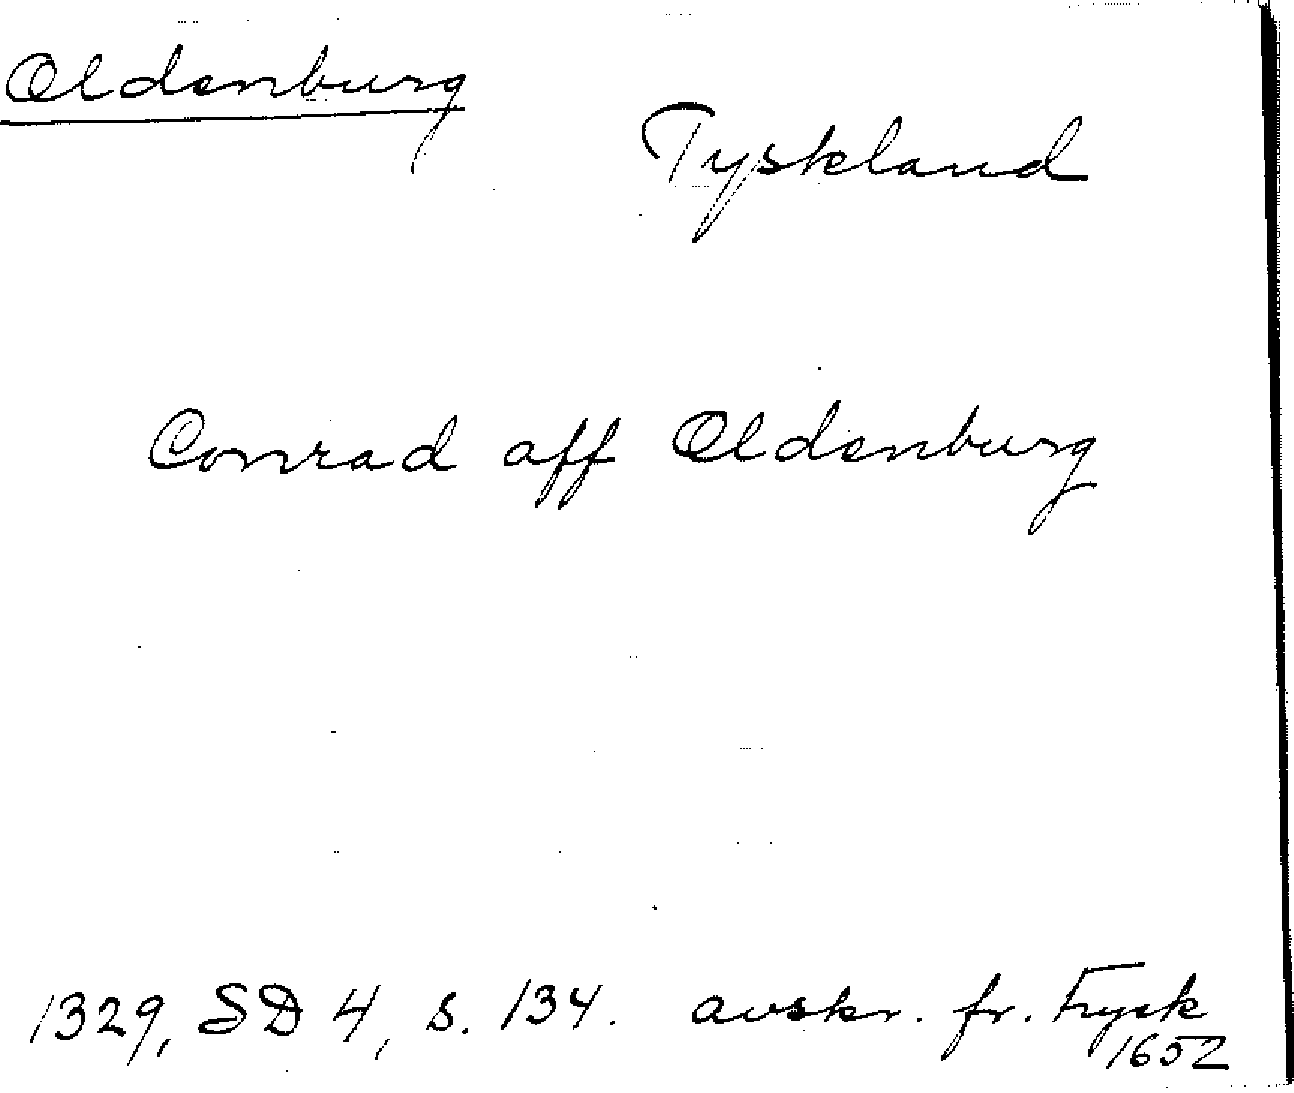 Oldenburg
Tyskland
Conrad aff Oldenburg
1329, SD 4, s. 134. avskr. fr. tryck
1652